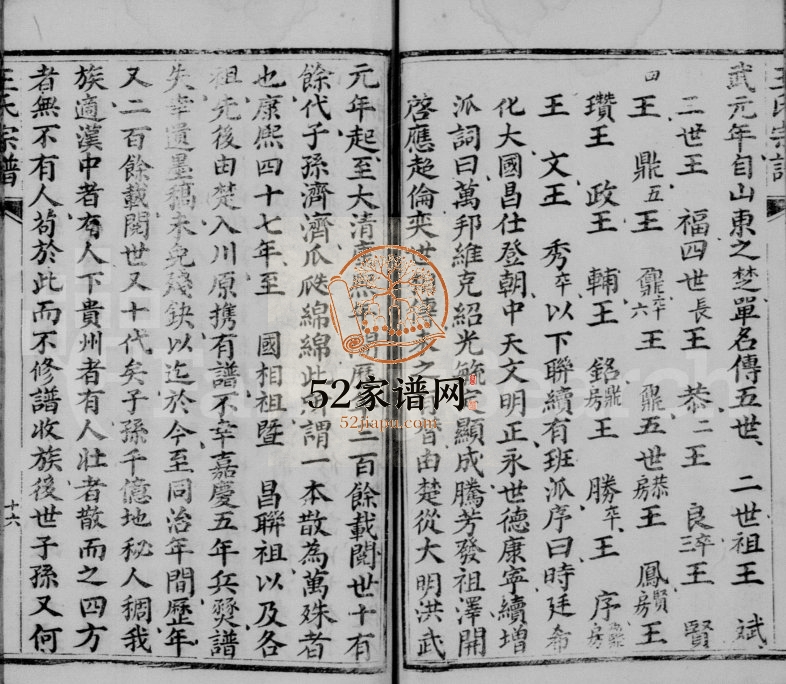 武元年自山東之楚單名傳五世、二世祖王 斌
三世王 福四世長王 恭二王 良三卒王 賢
四王 鼎五王 鼐卒六王 鼏五世恭房王 鳳賢房王
瓚王 政王 輔王 銘鼎房王 勝卒王 序房
王 文王 秀卒以下聯續有班派序曰時廷希
化大國昌仕登朝中天文明正永世德康寧續增
派詞曰萬邦維克紹光毓 顯成騰芳發祖澤開
啓應超倫奕世 傳 之 皆由楚從大明洪武
元年起至大清康熙年間歷 二百餘載閱世十有
餘代子孫濟濟瓜瓞綿綿此 謂一本散為萬殊者
也康熙四十七年至 國相祖暨 昌聯祖以及各
祖先後由楚入川原攜有譜不幸嘉慶五年兵燹譜
失幸遺墨稿未免殘缺以迄於今至同治年間歷年
又二百餘載閱世又十代矣子孫千億地秘人稠我
族適漢中者有人下貴州者有人壯者散而之四方
者無不有人苟於此而不修譜收族後世子孫又何
王氏宗譜
十六
王氏宗譜
52家谱网
52jiapu.com